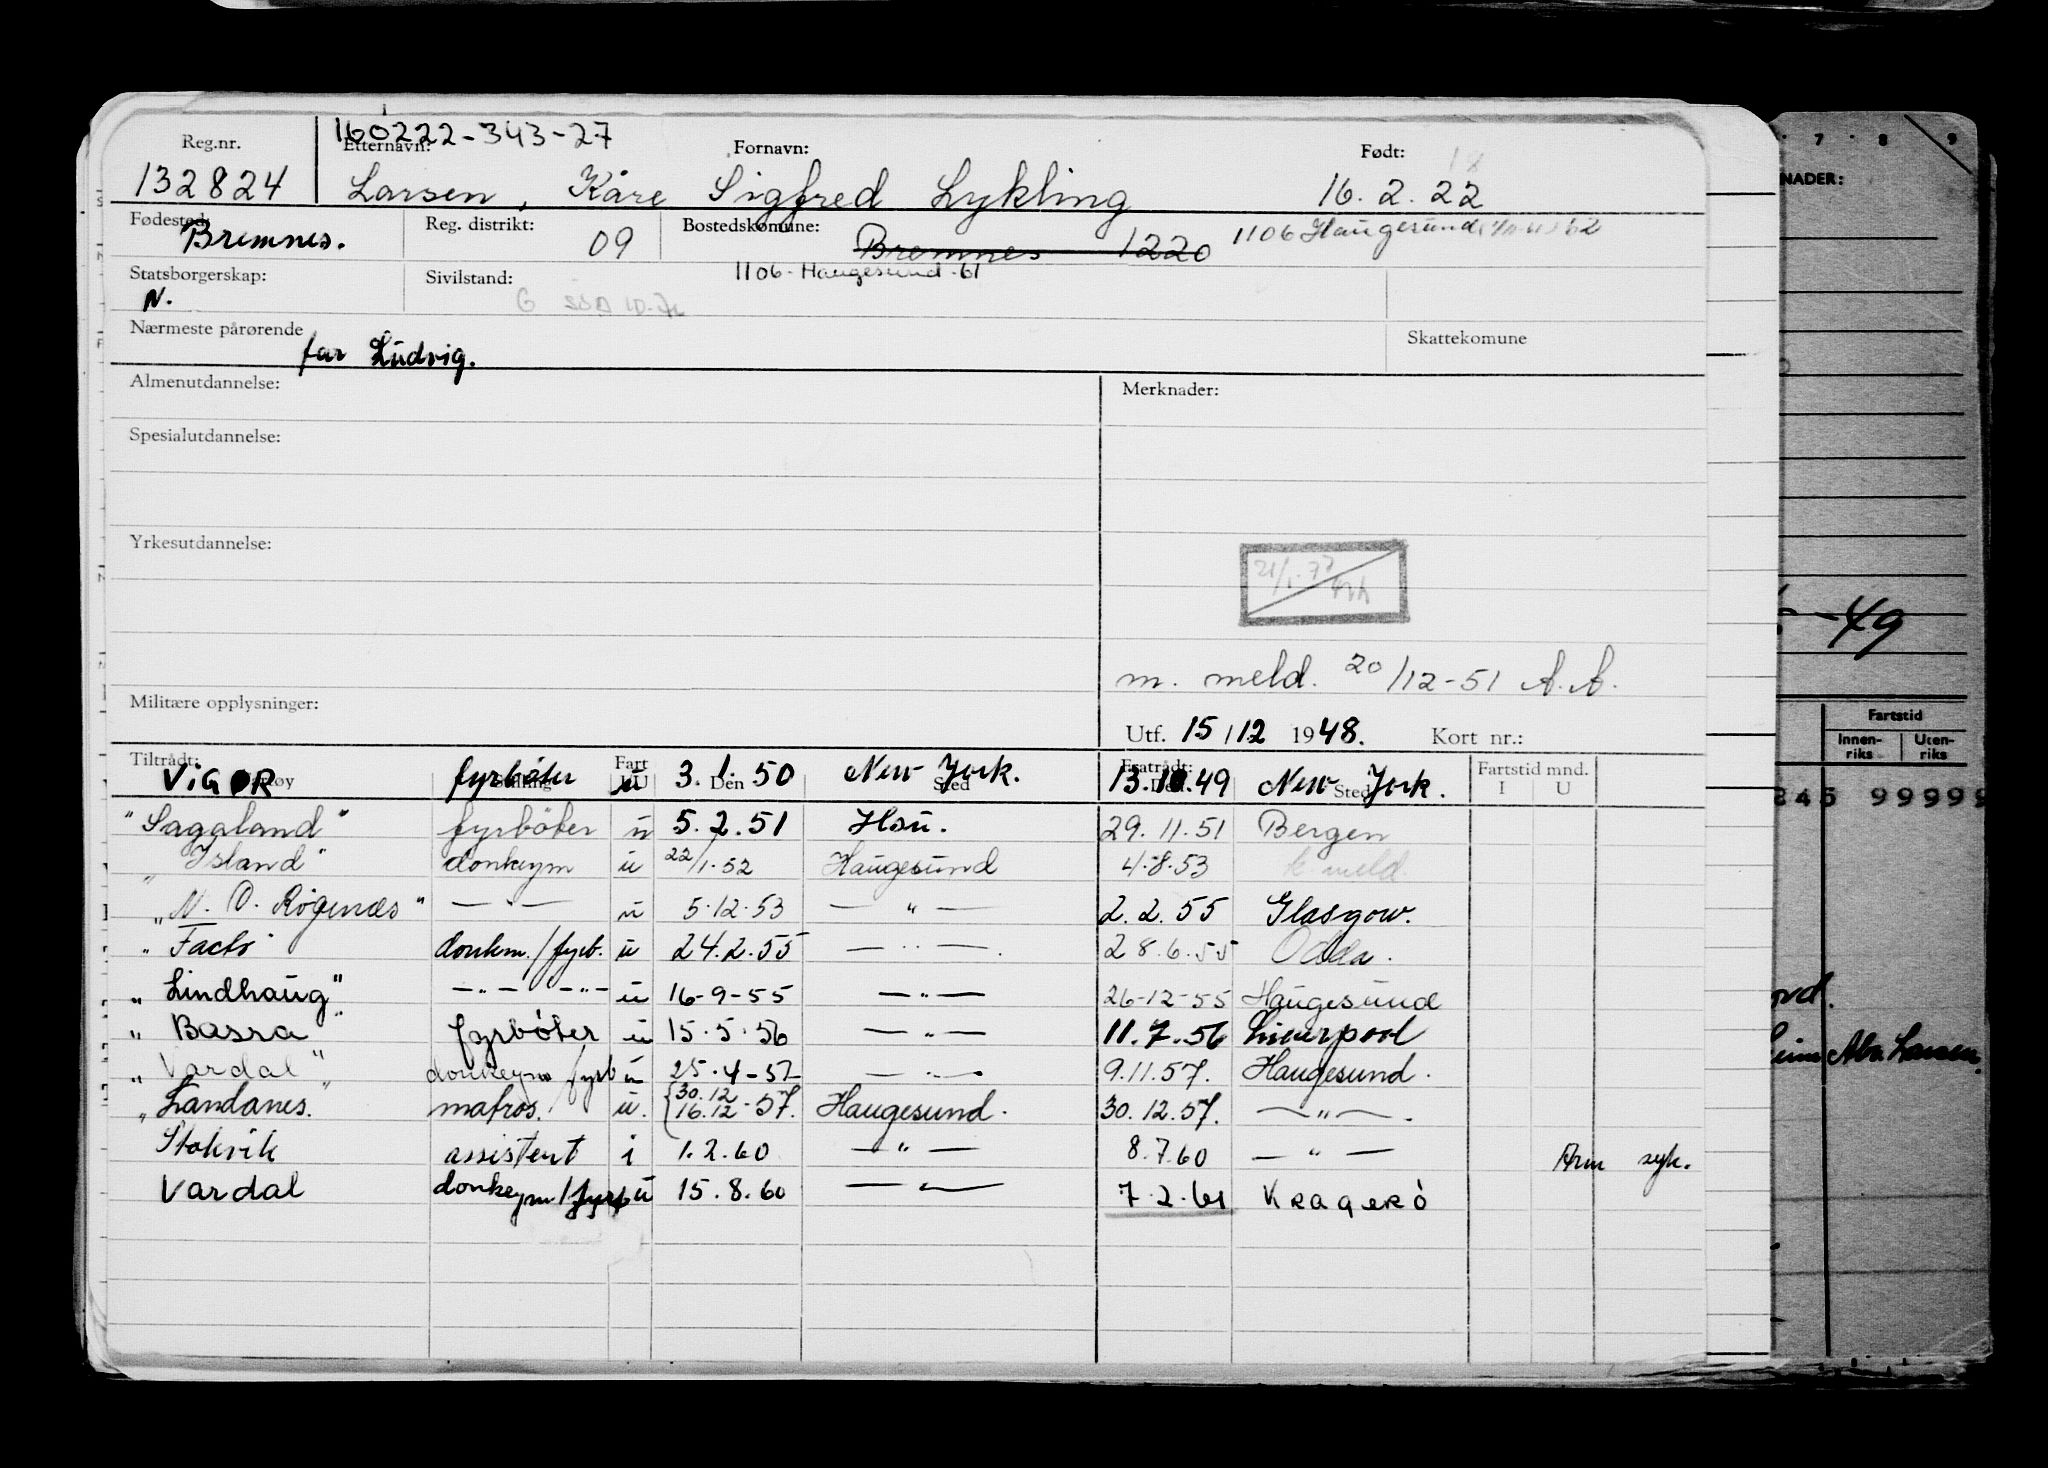 160222-343-27
Reg.nr. Etternavn: Fornavn: Født: 18
132824 Larsen, Kåre Sigfred Lykling 16.2.22
Fødested: Bremnes. Reg. distrikt: 09 Bostedskomune: Bremnes 1220 1106 Haugesund
1106-Haugesund-61
Statsborgerskap: N. Sivilstand: G
Nærmeste pårørende far Ludvig. Skattekomune
Almenutdannelse: Merknader:
Spesialutdannelse:
Yrkesutdannelse:
m. meld. 20/12-51 A.A.
Militære opplysninger:
Utf. 15/12 1948. Kort nr.:
Tiltrådt: Fart Fratrådt: Fartstid mnd.
Stilling I/U Den Sted Den Sted I U
ViGOR fyrbøter u 3.1.50 New York. 13.10.49 New York.
"Sagaland" fyrbøter u 5.2.51 Hsu. 29.11.51 Bergen
"Island" donkeym u 22/1.52 Haugesund 4.8.53 k. meld.
"N. O. Røgenæs" — · — u 5.12.53 — " — 2.2.55 Glasgow.
"Facto" donkm./fyrb. u 24.2.55 — " — 28.6.55 Odda.
"Lindhaug" — " — — " — u 16-9-55 — " — 26-12-55 Haugesund
"Basra" fyrbøter u 15.5.56 — " — 11.7.56 Liverpool
"Vardal" donkeym/fyrb u 25.4-57 — " — 9.11.57. Haugesund.
"Landanes." matros. u. {30.12 16.12-57. Haugesund. 30.12.57. — " —.
Stokvik assistent i 1.2.60 — " — 8.7.60 — " — Arm syk.
Vardal donkeym/fyrb u 15.8.60 — " — 7.2.61 Kragerö
7 8 9
NADER:
-49
Fartstid
Innen-riks Uten-riks
845 99999